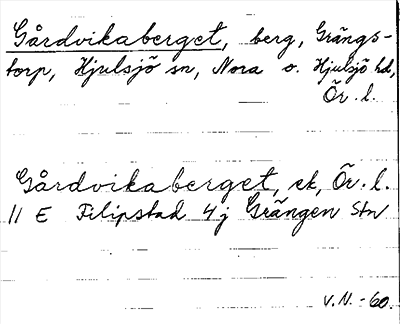 Gårdvikaberget, berg, Grängs-
torp, Hjulsjö sn, Nora o. Hjulsjö hd,
Ör. l.
Gårdvikaberget, ek, Ör. l.
11 E Filipstad 4j Grängen Stn
V.N. -60.